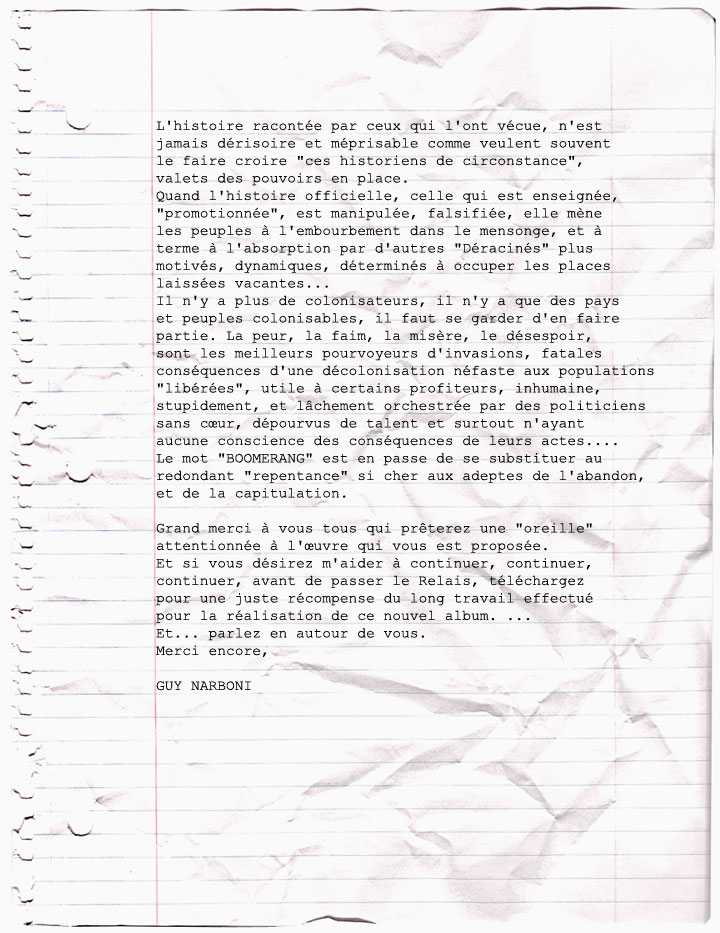 L'histoire racontée par ceux qui l'ont vécue, n'est
jamais dérisoire et méprisable comme veulent souvent
le faire croire "ces historiens de circonstance",
valets des pouvoirs en place.
Quand l'histoire officielle, celle qui est enseignée,
"promotionnée", est manipulée, falsifiée, elle mène
les peuples à l'embourbement dans le mensonge, et à
terme à l'absorption par d'autres "Déracinés" plus
motivés, dynamiques, déterminés à occuper les places
laissées vacantes...
Il n'y a plus de colonisateurs, il n'y a que des pays
et peuples colonisables, il faut se garder d'en faire
partie. La peur, la faim, la misère, le désespoir,
sont les meilleurs pourvoyeurs d'invasions, fatales
conséquences d'une décolonisation néfaste aux populations
"libérées", utile à certains profiteurs, inhumaine,
stupidement, et lâchement orchestrée par des politiciens
sans cœur, dépourvus de talent et surtout n'ayant
aucune conscience des conséquences de leurs actes....
Le mot "BOOMERANG" est en passe de se substituer au
redondant "repentance" si cher aux adeptes de l'abandon,
et de la capitulation.
Grand merci à vous tous qui prêterez une "oreille"
attentionnée à l'œuvre qui vous est proposée.
Et si vous désirez m'aider à continuer, continuer,
continuer, avant de passer le Relais, téléchargez
pour une juste récompense du long travail effectué
pour la réalisation de ce nouvel album. ...
Et... parlez en autour de vous.
Merci encore,
GUY NARBONI